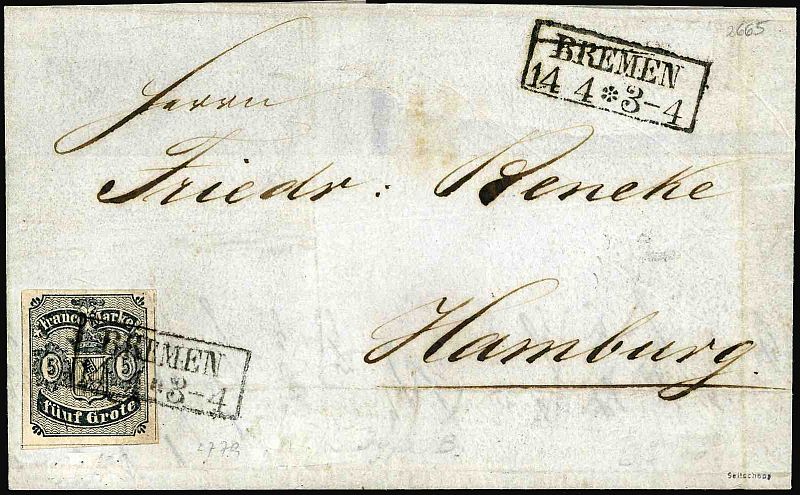 2665
BREMEN
14 4 * 3-4
Herrn
Friedr: Beneke
Hamburg.
Franco Marke
5 5
fünf Grote
BREMEN
14 4 * 3-4